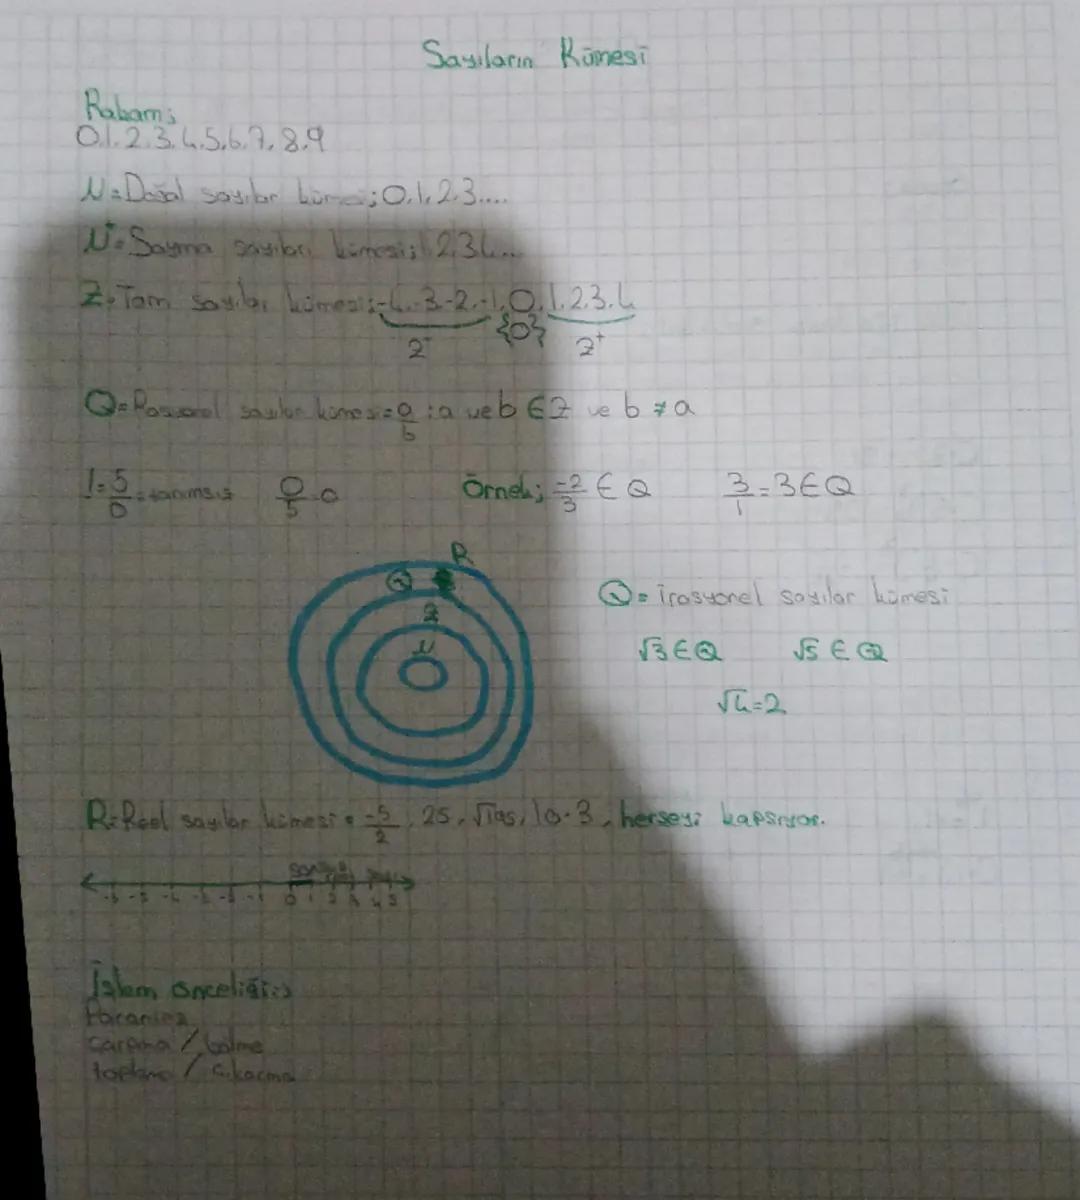 Sayıların Kümesi
Rakam;
0,1,2,3,4,5,6,7,8,9
N=Doğal sayılar kümesi;0,1,2,3....
N⁺=Sayma sayıları kümesi;1,2,3,4...
Z=Tam sayılar kümesi;-4,-3,-2,-1,0,1,2,3,4
Z⁻ {0} Z⁺
Q=Rasyonel sayılar kümesi=a/b :a ve b ∈ Z ve b ≠ a
!=5/0=tanımsız 0/5=0 Örnek; -2/3 ∈ Q 3/1=3∈Q
R
Q
Z
N
Q=irasyonel sayılar kümesi
√3∈Q √5∈Q
√4=2
R=Reel sayılar kümesi= -5/2, 25, herşeyi kapsıyor.
0 1
İşlem önceliği:
Parantez
Çarpma / bölme
toplama / çıkarma